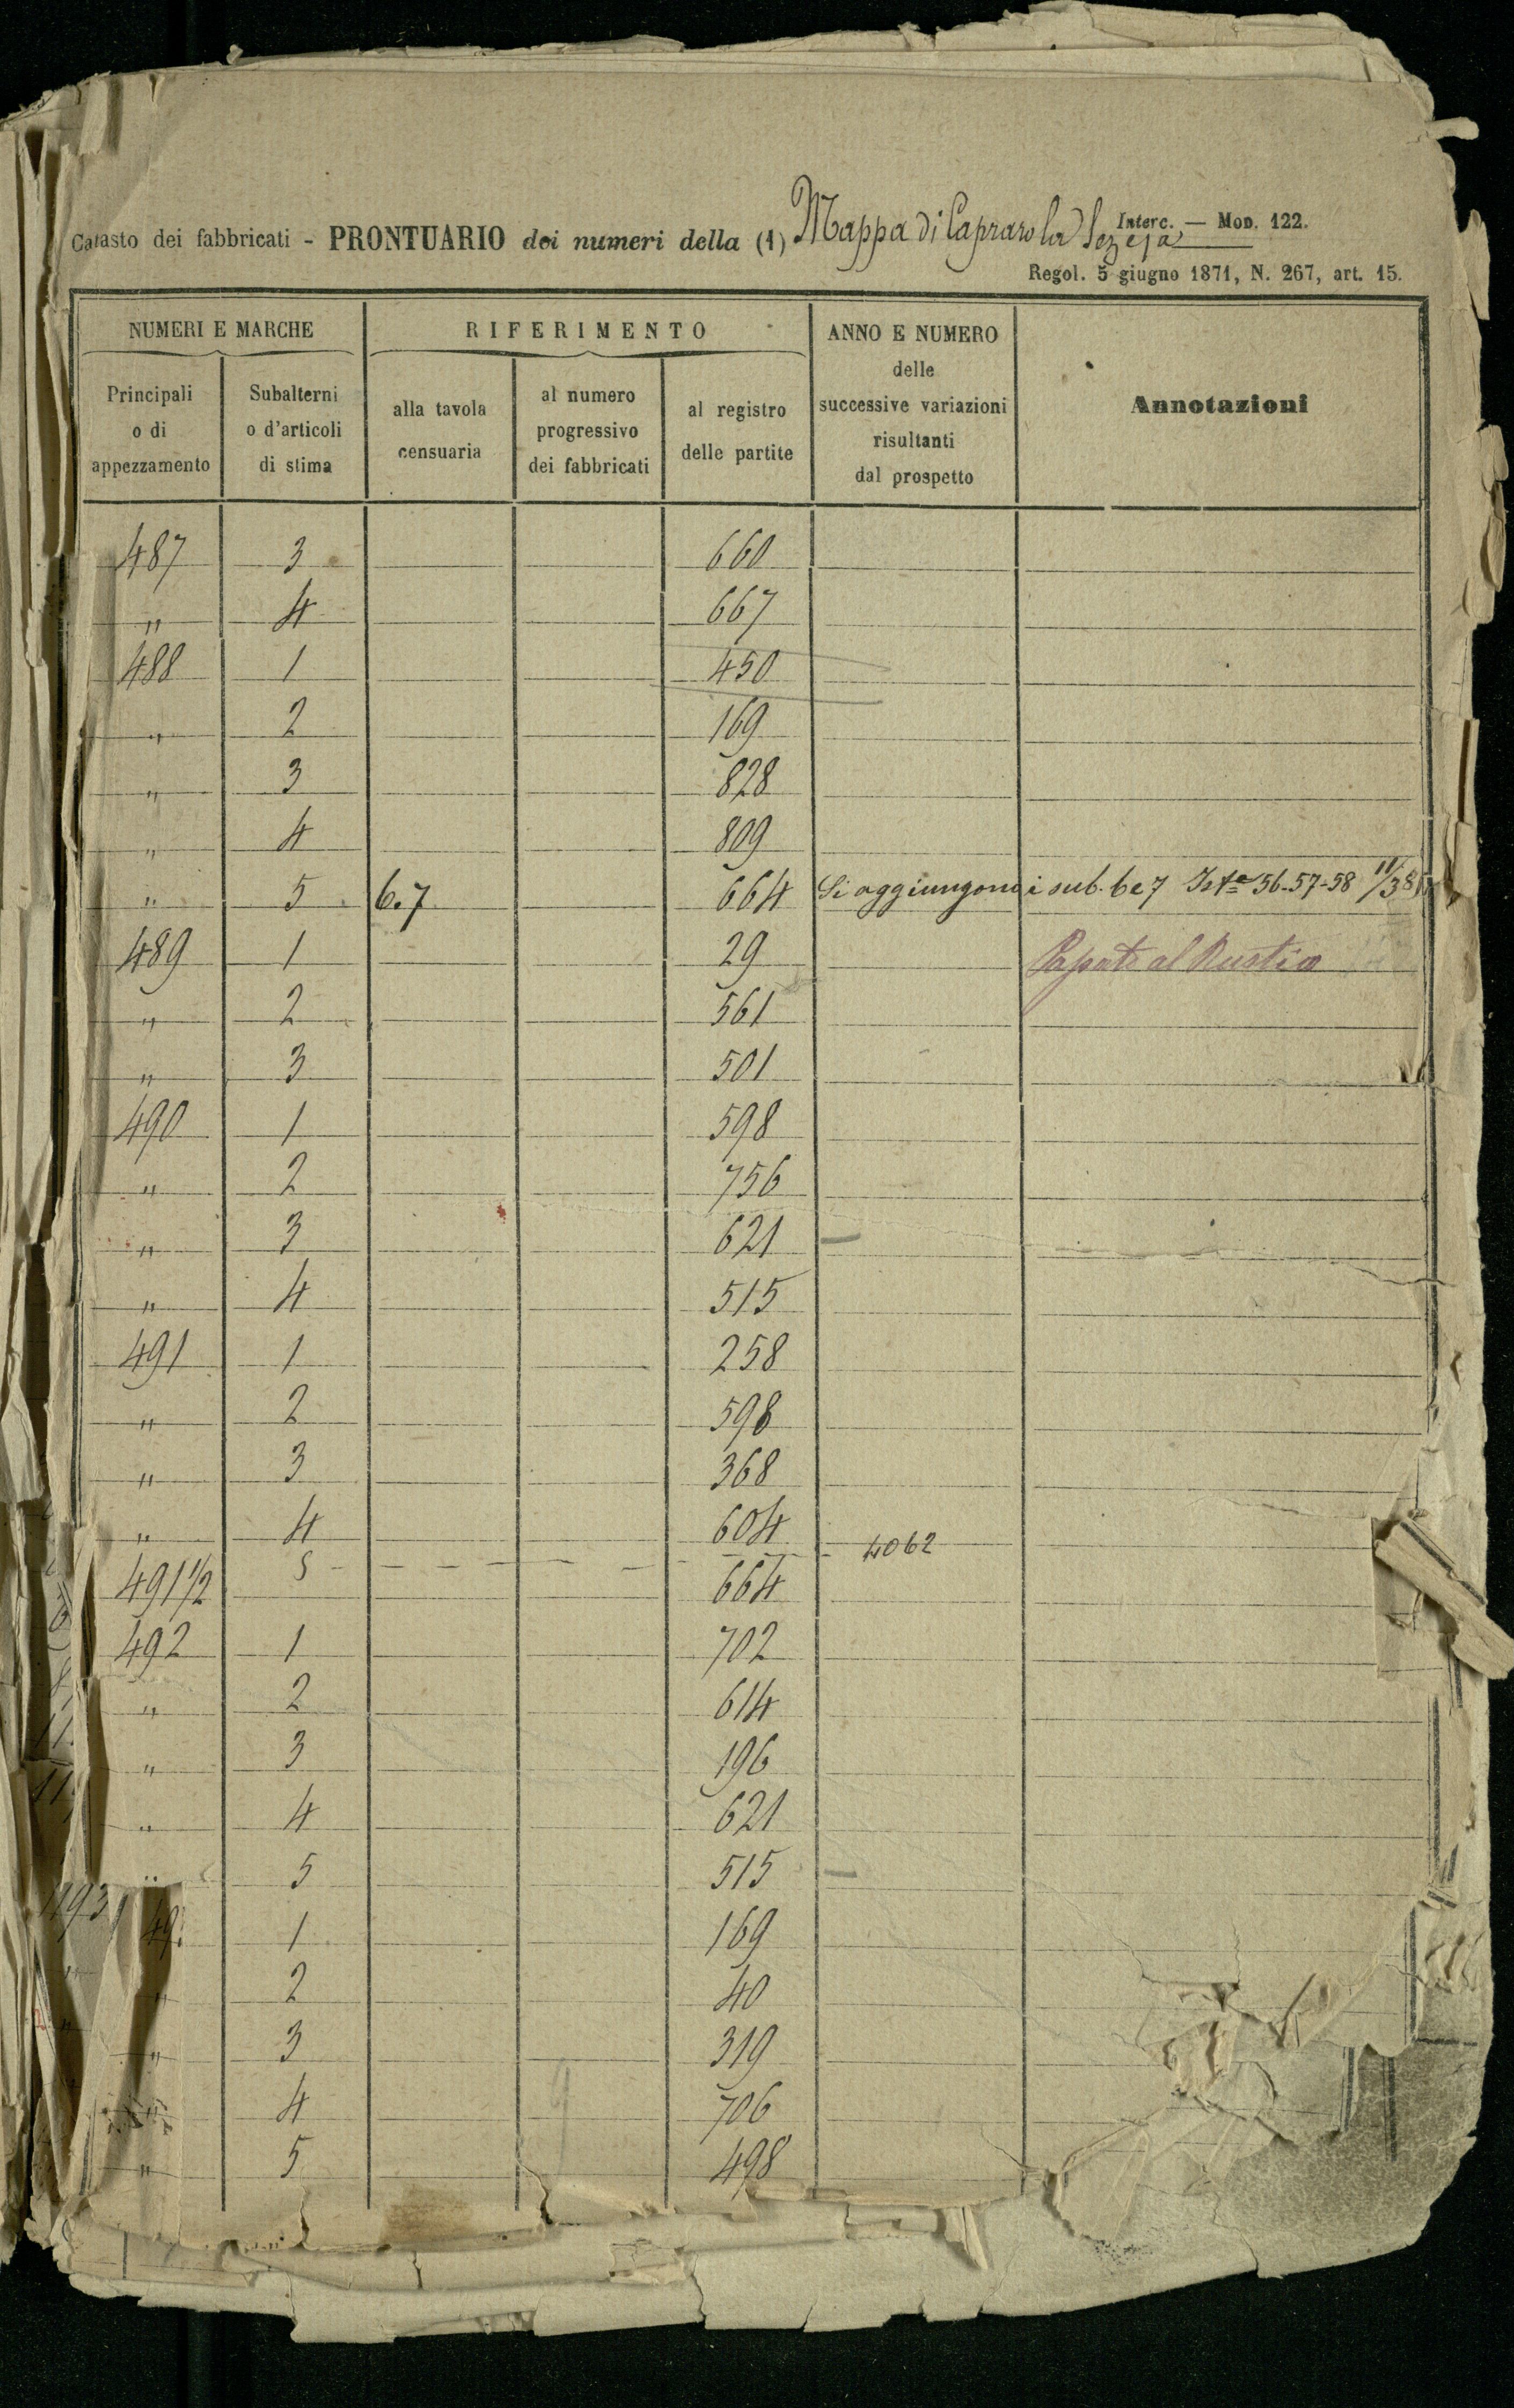 Catasto dei fabbricati - PRONTUARIO dei numeri della (1) Mappa di Caprarola Sez. Iª
Interc. — Mod. 122.
Regol. 5 giugno 1871, N. 267, art. 15.
NUMERI E MARCHE RIFERIMENTO ANNO E NUMERO delle successive variazioni risultanti dal prospetto Annotazioni
Principali o di appezzamento Subalterni o d'articoli di stima alla tavola censuaria al numero progressivo dei fabbricati al registro delle partite
487 3 660
" 4 667
488 1 450
" 2 169
" 3 828
" 4 809
" 5 6.7 664 Si aggiungono i sub. 6 e 7 56-57-58
489 1 29 Passato al Rustico
" 2 561
" 3 501
490 1 598
" 2 756
" 3 621
" 4 515
491 1 258
" 2 598
" 3 368
" 4 604
5 - - - - - - 4062
491 1/2 664
492 1 702
" 2 614
" 3 196
" 4 621
" 5 515
49 1 169
" 2 40
" 3 319
" 4 706
" 5 498